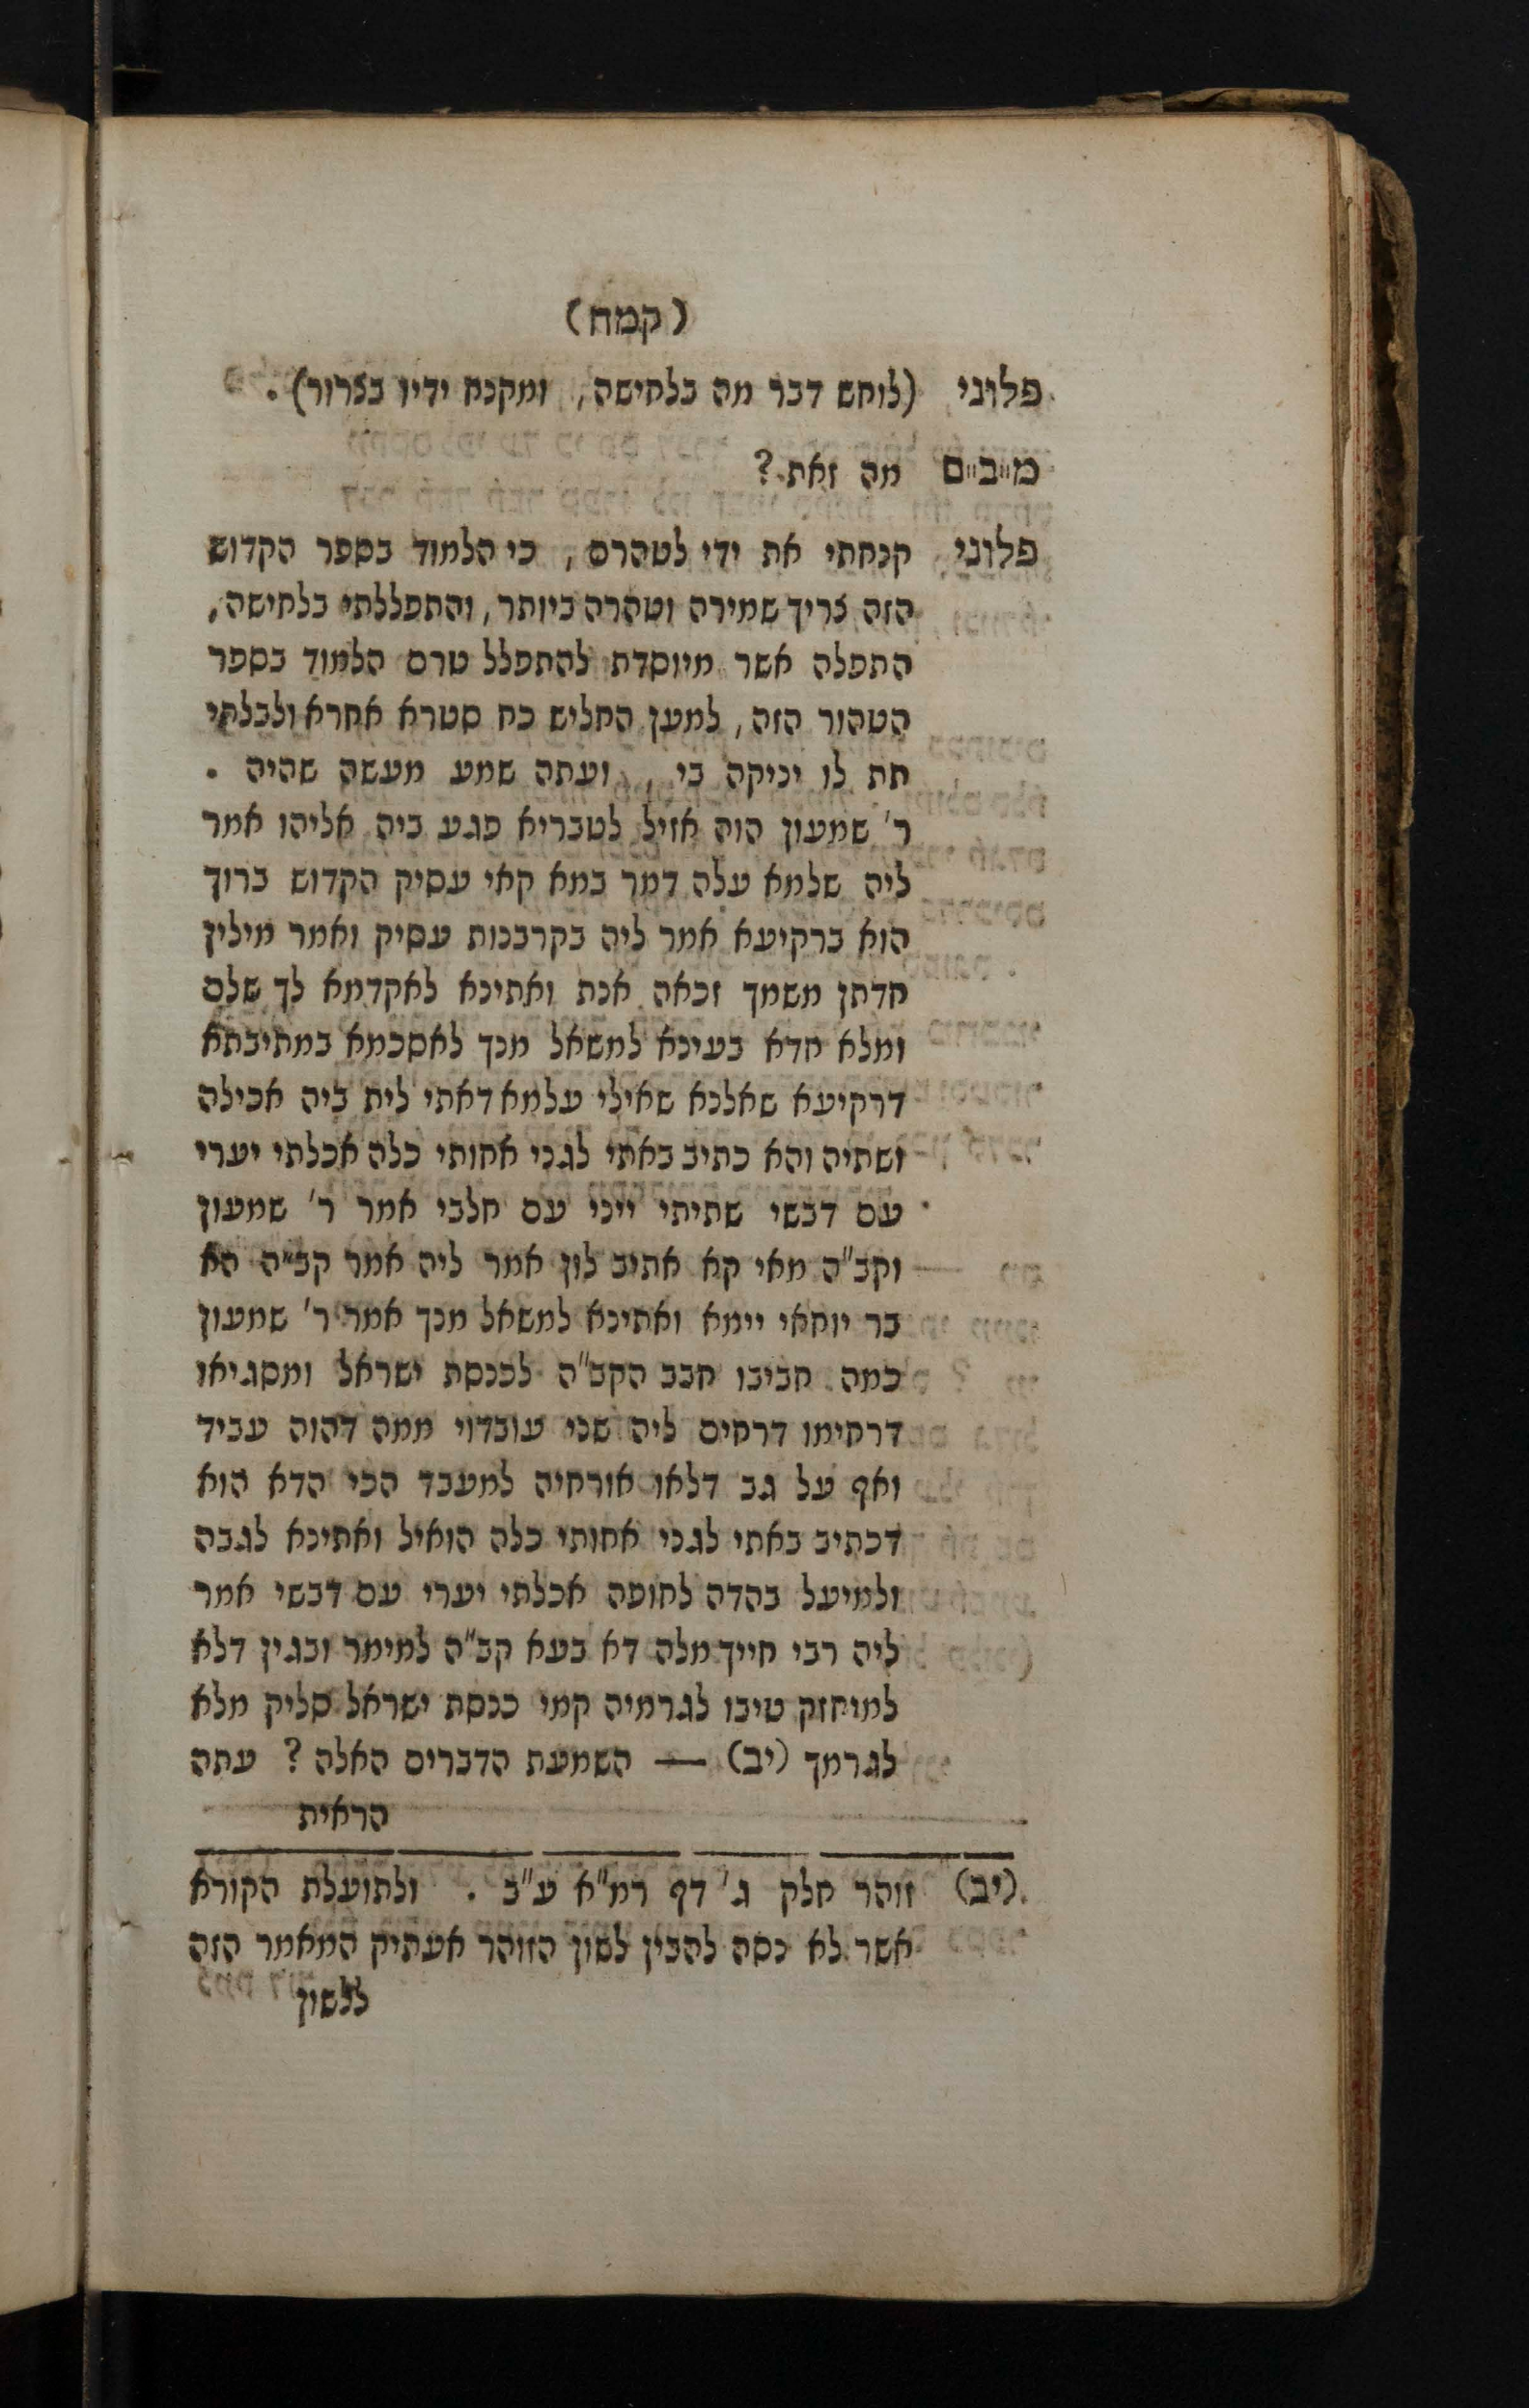 (קמח)
פלוני (לוחש דבר מה בלחישה, ומקנח ידיו בצרור).
מ"ב"ם מה זאת?
פלוני קנחתי את ידי לטהרם, כי הלמוד בספר הקדוש
הזה צריך שמירה וטהרה ביותר, והתפללתי בלחישה,
התפלה אשר מיוסדת להתפלל טרם הלמוד בספר
הטהור הזה, למען החליש כח סטרא אחרא ולבלתי
תת לו יניקה בי, ועתה שמע מעשה שהיה.
ר' שמעון הוה אזיל לטבריא פגע ביה אליהו אמר
ליה שלמא עלה דמר במא קאי עסיק הקדוש ברוך
הוא ברקיעא אמר ליה בקרבנות עסיק ואמר מילין
חדתן משמך זכאה אנת ואתינא לאקדמא לך שלם
ומלא חדא בעינא למשאל מנך לאסכמא במתיבתא
דרקיעא שאלנא שאילי עלמא דאתי לית ביה אכילה
ושתיה והא כתיב באתי לגני אחותי כלה אכלתי יערי
עם דבשי שתיתי ייני עם חלבי אמר ר' שמעון
וקב"ה מאי קא אתיב לון אמר ליה אמר קב"ה הא
בר יוחאי יימא ואתינא למשאל מנך אמר ר' שמעון
כמה חביבו חבב הקב"ה לכנסת ישראל ומסגיאו
דרחימו דרחים ליה שני עובדוי ממה דהוה עביד
ואף על גב דלאו אורחיה למעבד הכי הדא הוא
דכתיב באתי לגני אחותי כלה הואיל ואתינא לגבה
ולמיעל בהדה לחופה אכלתי יערי עם דבשי אמר
ליה רבי חייך מלה דא בעא קב"ה למימר ובגין דלא
למוחזק טיבו לגרמיה קמי כנסת ישראל סליק מלא
לגרמך (יב) — השמעת הדברים האלה? עתה
הראית
(יב) זוהר חלק ג' דף רמ"א ע"ב. ולתועלת הקורא
אשר לא נסה להבין לשון הזוהר אעתיק המאמר הזה
ללשון